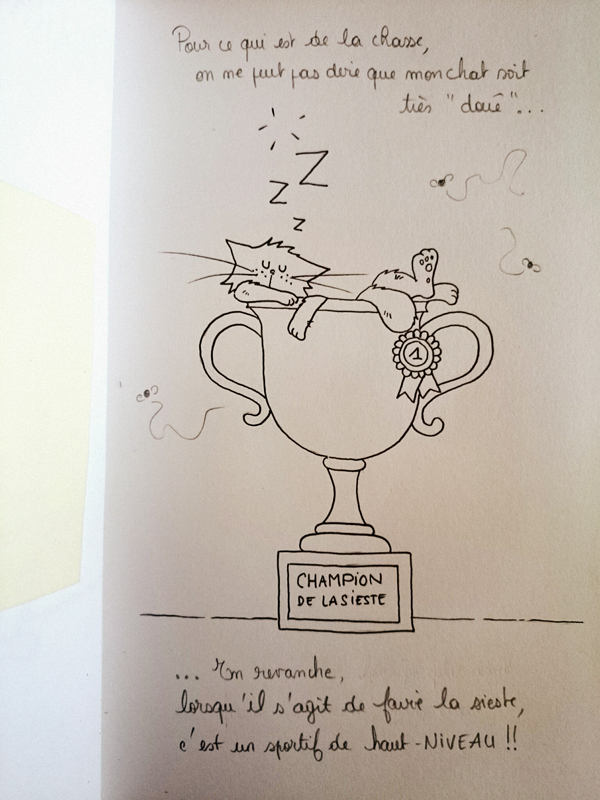 Pour ce qui est de la chasse,
on ne peut pas dire que mon chat soit
très "doué"...
Z
Z
Z
1
CHAMPION
DE LA SIESTE
... En revanche,
lorsqu'il s'agit de faire la sieste,
c'est un sportif de haut-NIVEAU !!